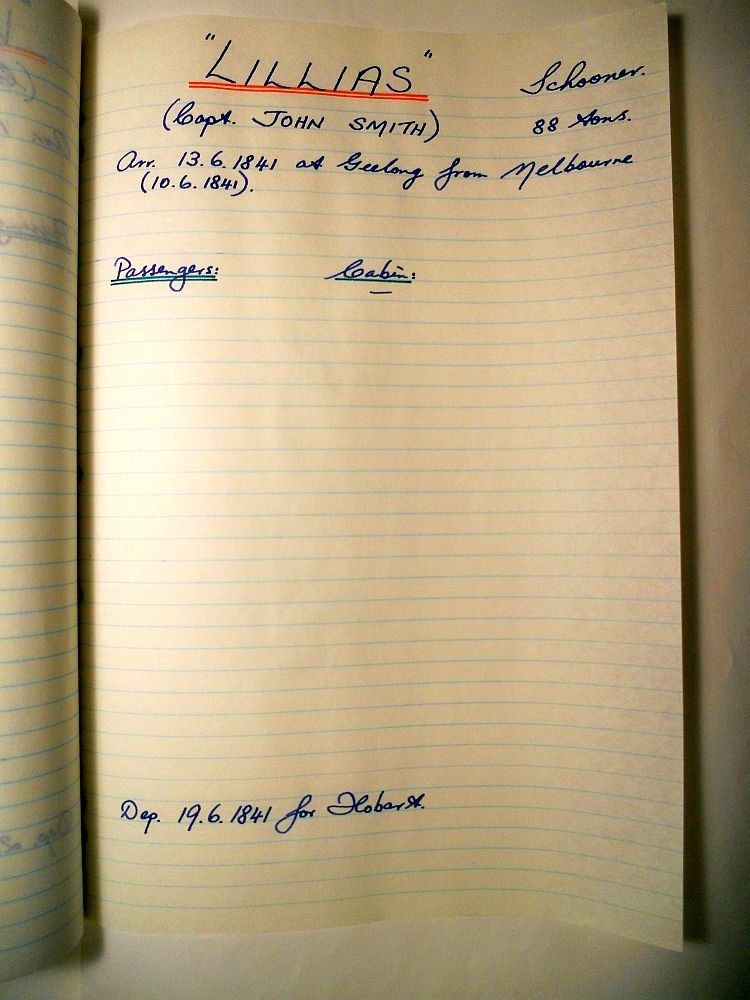 "LILLIAS" Schooner.
(Capt. JOHN SMITH) 88 tons.
Arr. 13.6.1841 at Geelong from Melbourne
(10.6.1841).
Passengers: Cabin:
—
Dep. 19.6.1841 for Hobart.